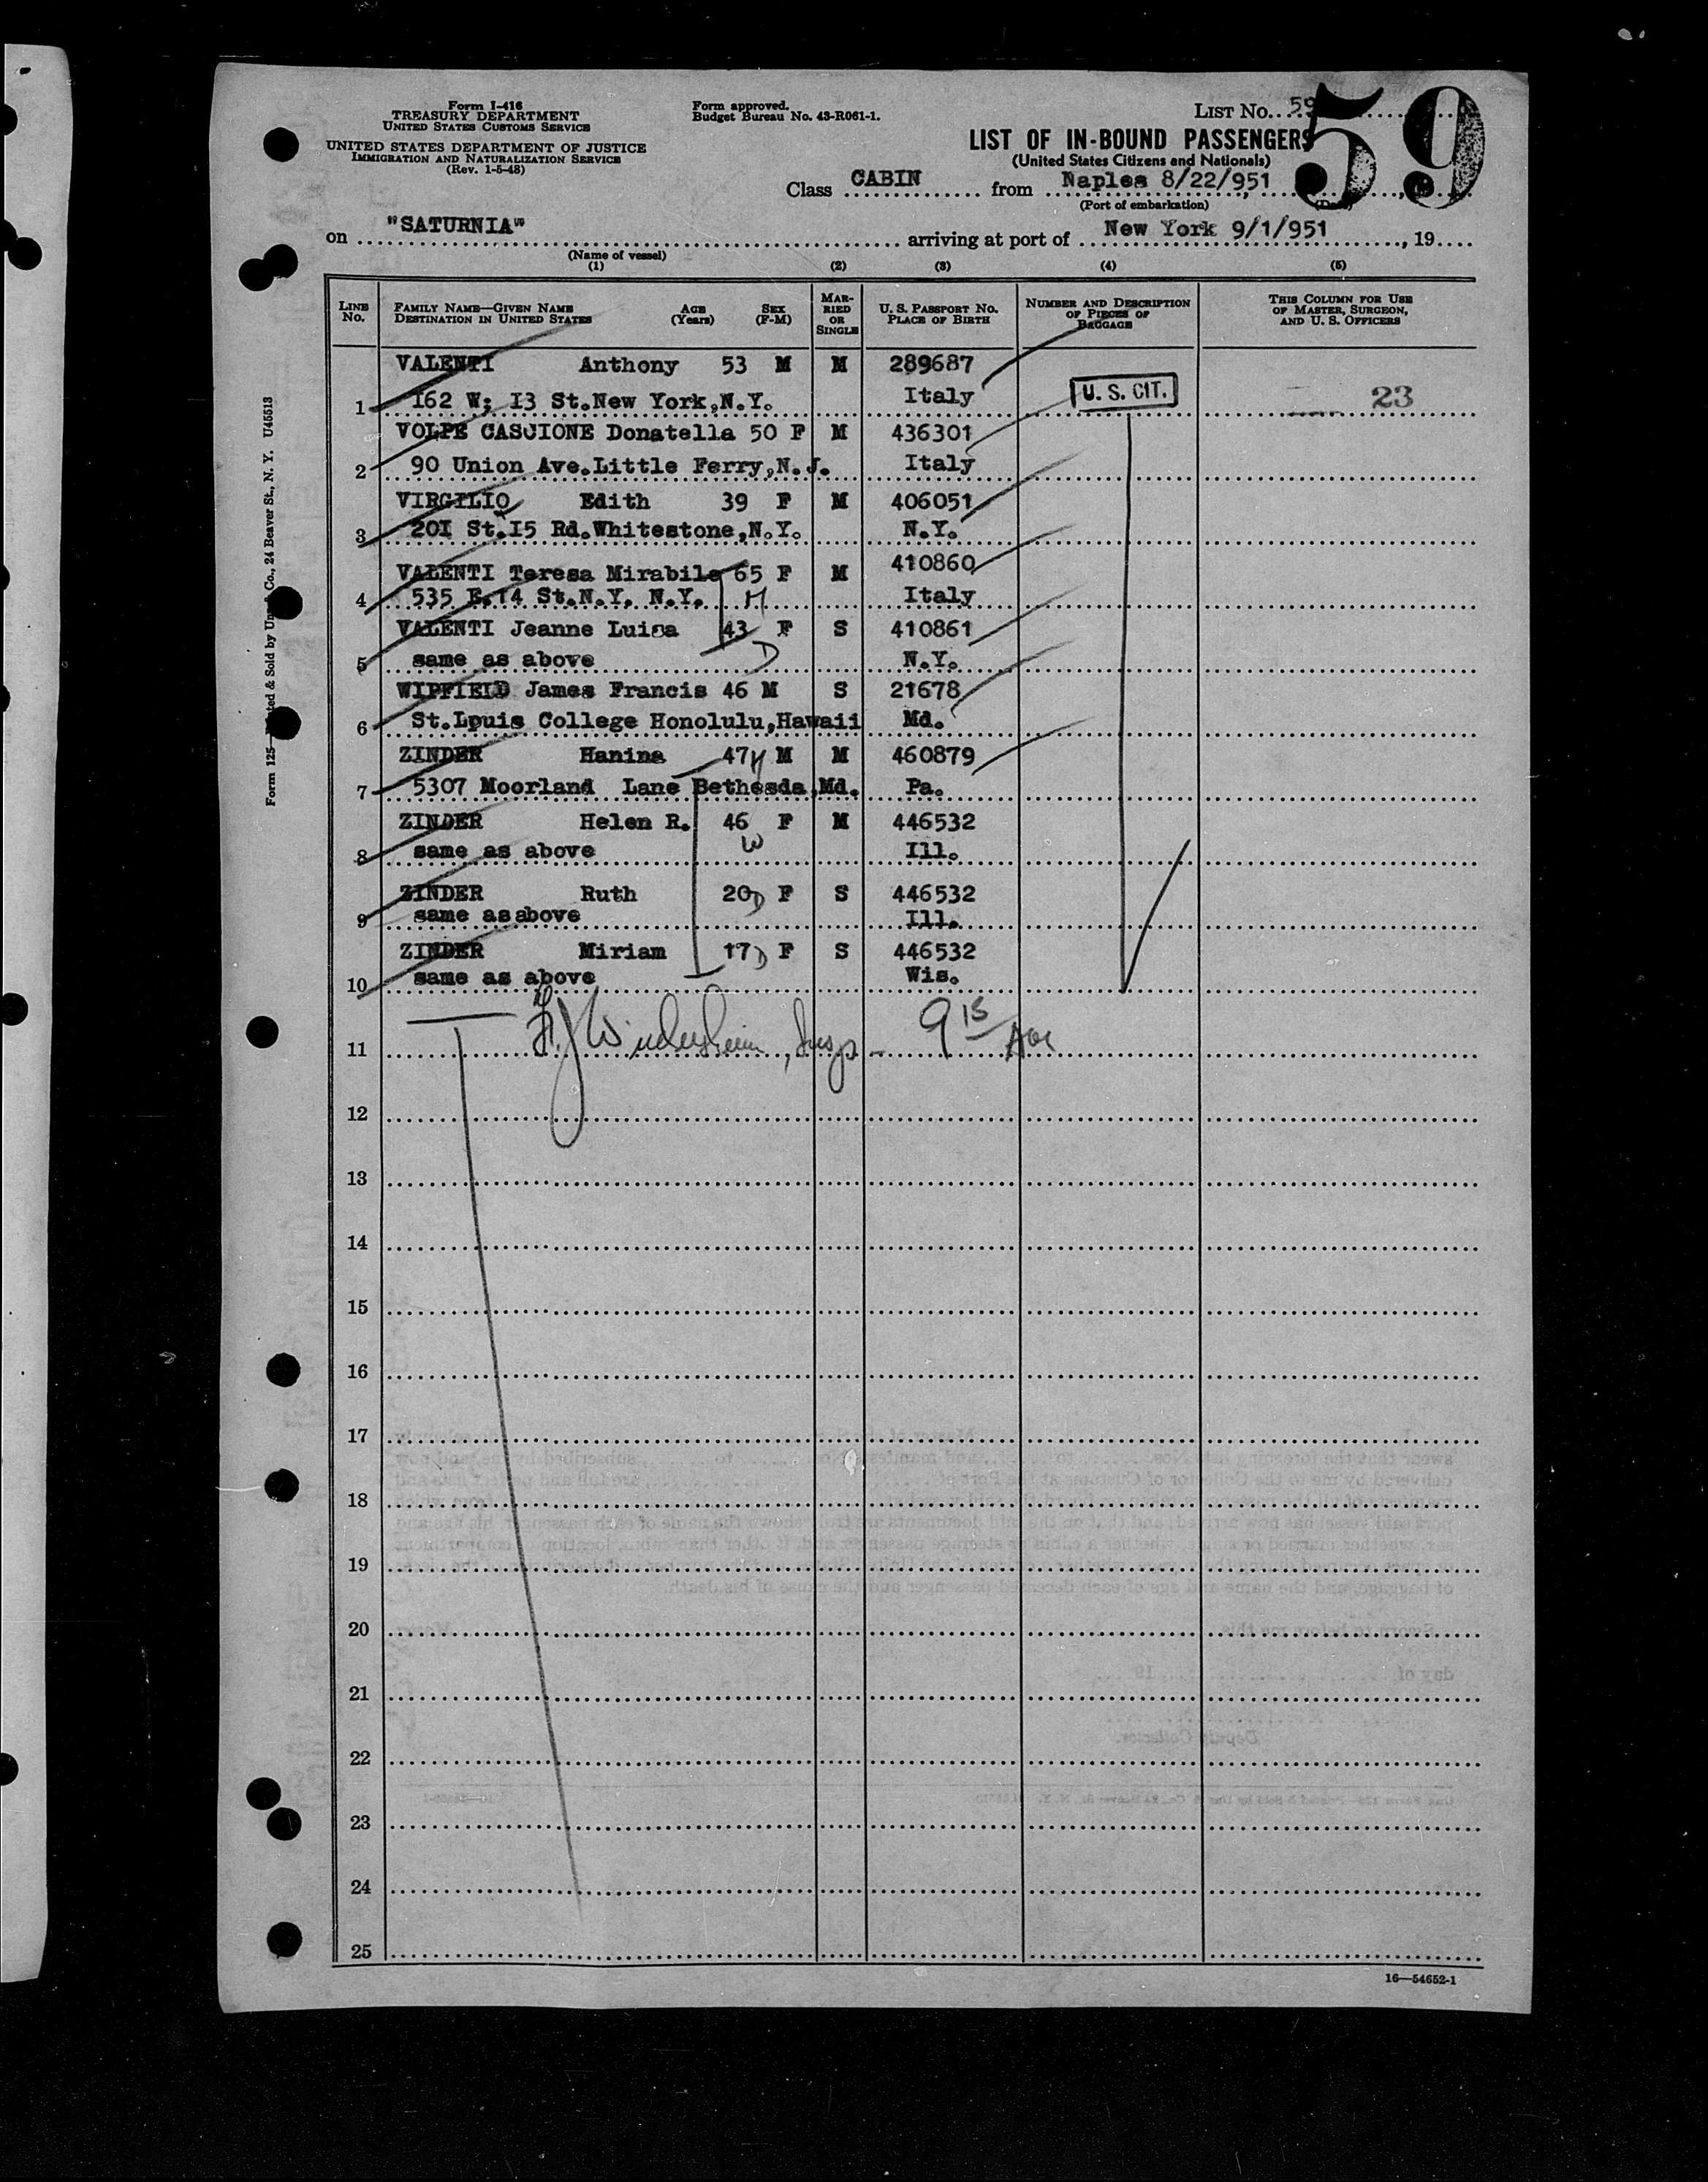 Form I-416
TREASURY DEPARTMENT
UNITED STATES CUSTOMS SERVICE
UNITED STATES DEPARTMENT OF JUSTICE
IMMIGRATION AND NATURALIZATION SERVICE
(Rev. 1-5-48)
Form approved.
Budget Bureau No. 43-R061-1.
LIST No. 59
59
LIST OF IN-BOUND PASSENGERS
(United States Citizens and Nationals)
Class CABIN from Naples 8/22/951
(Port of embarkation) (Date)
on "SATURNIA" arriving at port of New York 9/1/951, 19
(Name of vessel)
(1) (2) (3) (4) (5)
LINE No. FAMILY NAME—GIVEN NAME DESTINATION IN UNITED STATES AGE (Years) SEX (F-M) MARRIED OR SINGLE U. S. PASSPORT NO. PLACE OF BIRTH NUMBER AND DESCRIPTION OF PIECES OF BAGGAGE THIS COLUMN FOR USE OF MASTER, SURGEON, AND U. S. OFFICERS
VALENTI Anthony 53 M M 289687
1 162 W; I3 St.New York,N.Y. Italy U. S. CIT. 23
VOLPE CASCIONE Donatella 50 F M 436301
2 90 Union Ave.Little Ferry,N.J. Italy
VIRGILIO Edith 39 F M 406051
3 20I St.I5 Rd.Whitestone,N.Y. N.Y.
VALENTI Teresa Mirabile 65 F M 410860
4 535 E.14 St.N.Y. N.Y. M Italy
VALENTI Jeanne Luisa 43 F S 410861
5 same as above D N.Y.
WIPFIELD James Francis 46 M S 21678
6 St.Louis College Honolulu,Hawaii Md.
ZINDER Hanina 47 H M M 460879
7 5307 Moorland Lane Bethesda,Md. Pa.
ZINDER Helen R. 46 F M 446532
8 same as above W Ill.
ZINDER Ruth 20 D F S 446532
9 same as above Ill.
ZINDER Miriam 17 D F S 446532
10 same as above Wis.
11 Insp. 9 15
12
13
14
15
16
17
18
19
20
21
22
23
24
25
16—54652-1
Co., 24 Beaver St., N. Y. U45513